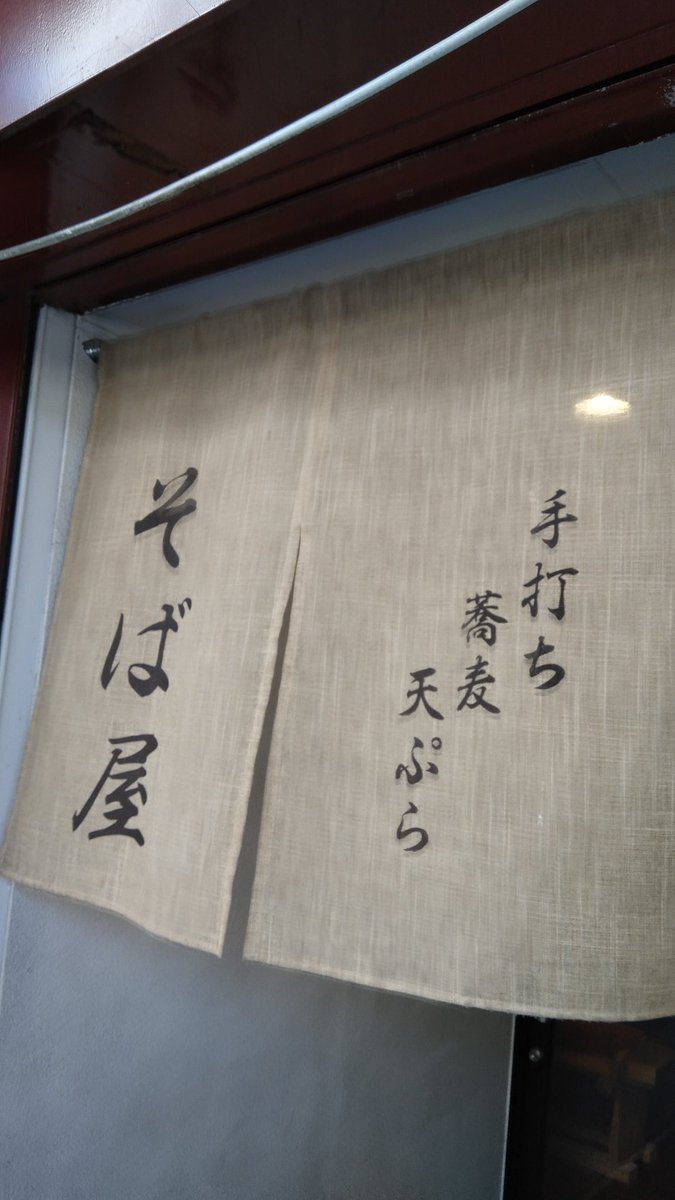 手打ち
蕎麦
天ぷら
そば屋